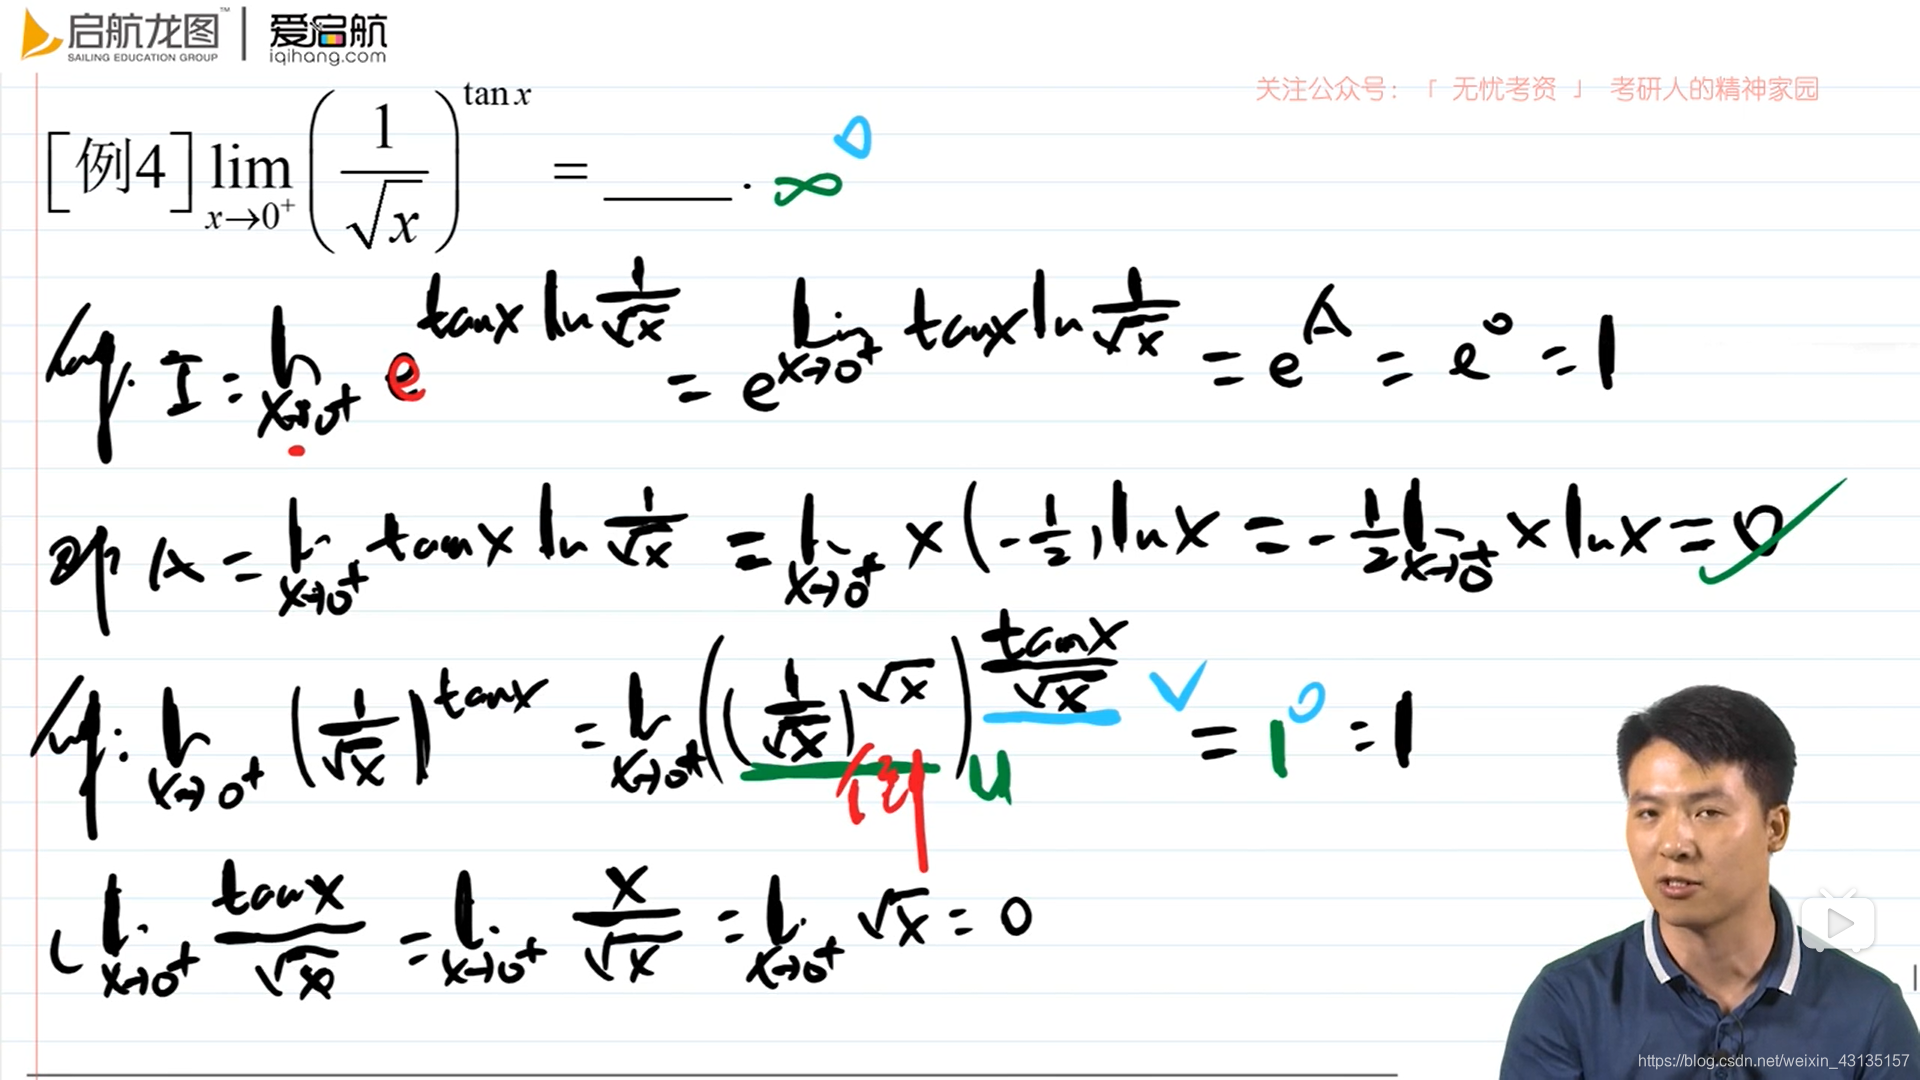 启航龙图™ | 爱启航
SAILING EDUCATION GROUP iqihang.com
关注公众号：「 无忧考资 」 考研人的精神家园
[例4] lim_{x→0⁺} (1/√x)^{tan x} = ____. ∞^0
I = lim_{x→0⁺} e^{tanx ln 1/√x} = e^{lim_{x→0⁺} tanx ln 1/√x} = e^A = e^0 = 1
A = lim_{x→0⁺} tanx ln 1/√x = lim_{x→0⁺} x(-1/2)lnx = -1/2 lim_{x→0⁺} x lnx = 0
lim_{x→0⁺} (1/√x)^{tanx} = lim_{x→0⁺} ((1/√x)^{√x})^{tanx/√x} = 1^0 = 1
例 u
lim_{x→0⁺} tanx/√x = lim_{x→0⁺} x/√x = lim_{x→0⁺} √x = 0
https://blog.csdn.net/weixin_43135157